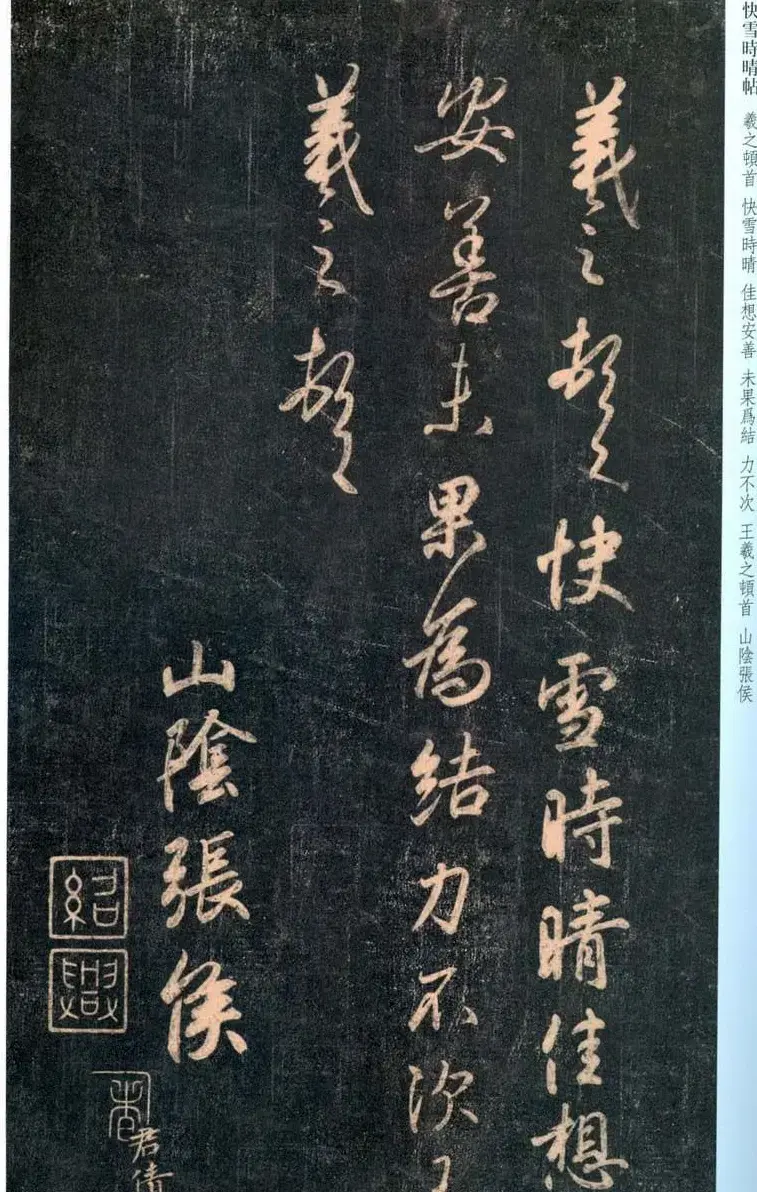 快雪時晴帖 羲之頓首 快雪時晴 佳想安善 未果爲結 力不次 王羲之頓首 山陰張侯
羲之頓首快雪時晴佳想
安善未果為結力不次王
羲之頓首
山陰張侯
紹
興
君倩